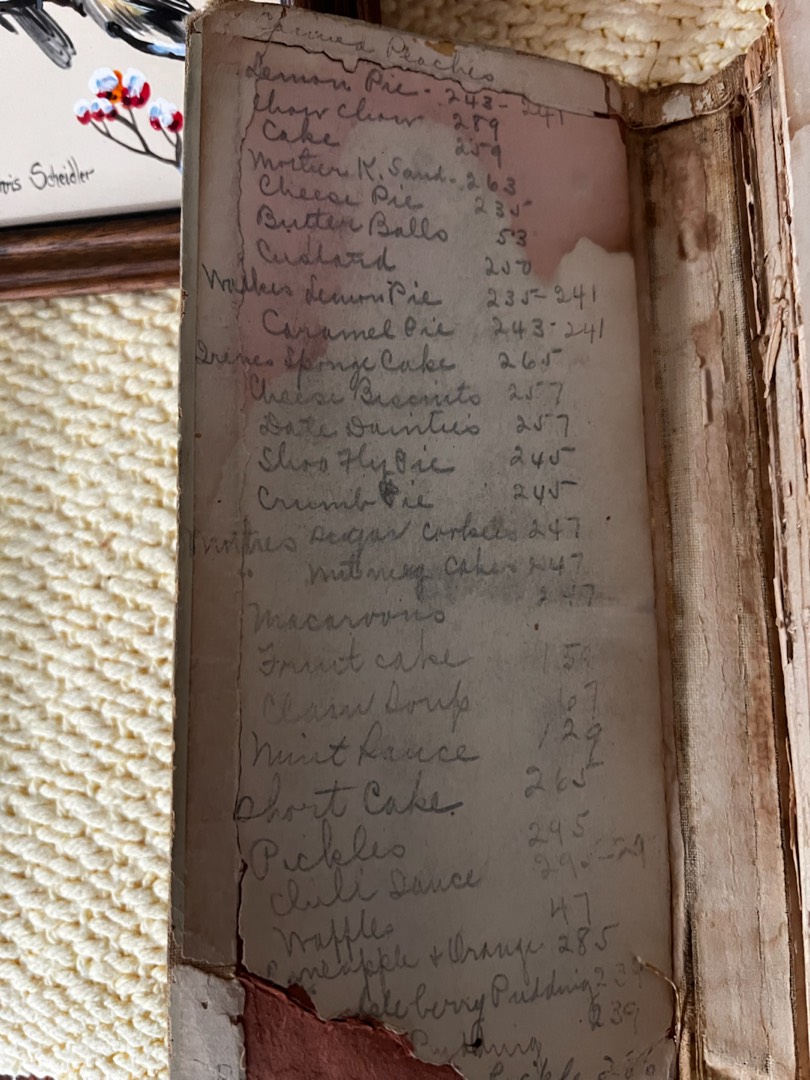 Chris Scheidler
Peaches
Lemon Pie - 243-241
Chow Chow 289
Cake 259
Mother K. Sand. 263
Cheese Pie 235
Butter Balls 53
Custard 250
Lemon Pie 235-241
Caramel Pie 243-241
Irenes Sponge Cake 265
Cheese Biscuits 257
Date Dainties 257
Shoo Fly Pie 245
Crumb Pie 245
Sugar Cookies 247
" Nutmeg Cakes 247
Macaroons 247
Fruit cake 152
Clam Soup 67
Mint Sauce 129
Short Cake. 265
Pickles 295
Chili Sauce 295-29
Waffles 47
Pineapple & Orange 285
berry Pudding 239
Pudding 239